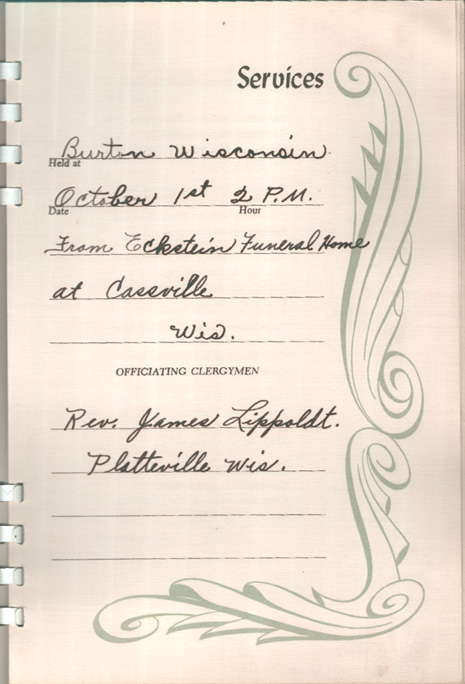 Services
Burton Wisconsin
Held at
October 1st 2 P.M.
Date Hour
From Eckstein Funeral Home
at Cassville
Wis.
OFFICIATING CLERGYMEN
Rev. James Lippoldt.
Platteville Wis.